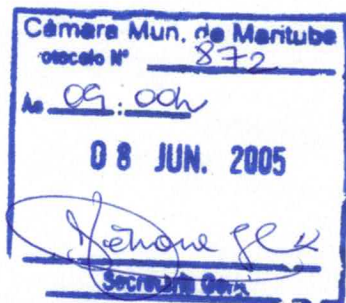 Câmara Mun. de Marituba
otocolo Nº 872
às 09:00h
08 JUN. 2005
Secretaria Geral